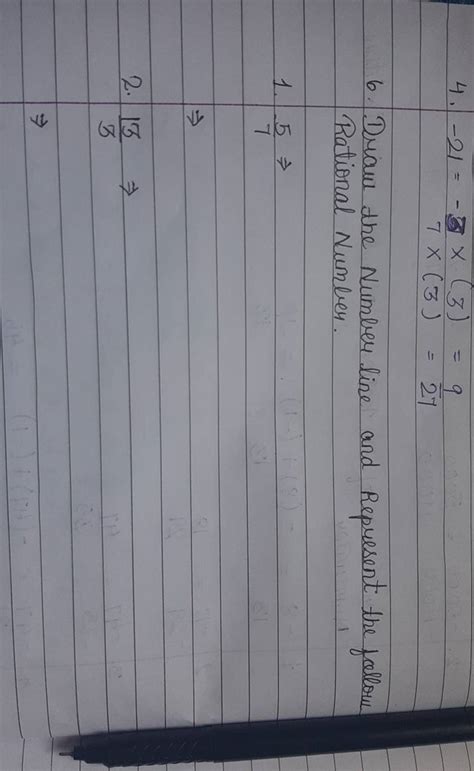 4. -21 = -3 × (3) = 9
7 × (3) = 27
6. Draw the Number line and Represent the follow
Rational Number.
1. 5/7 ⇒
⇒
2. 13/3 ⇒
⇒